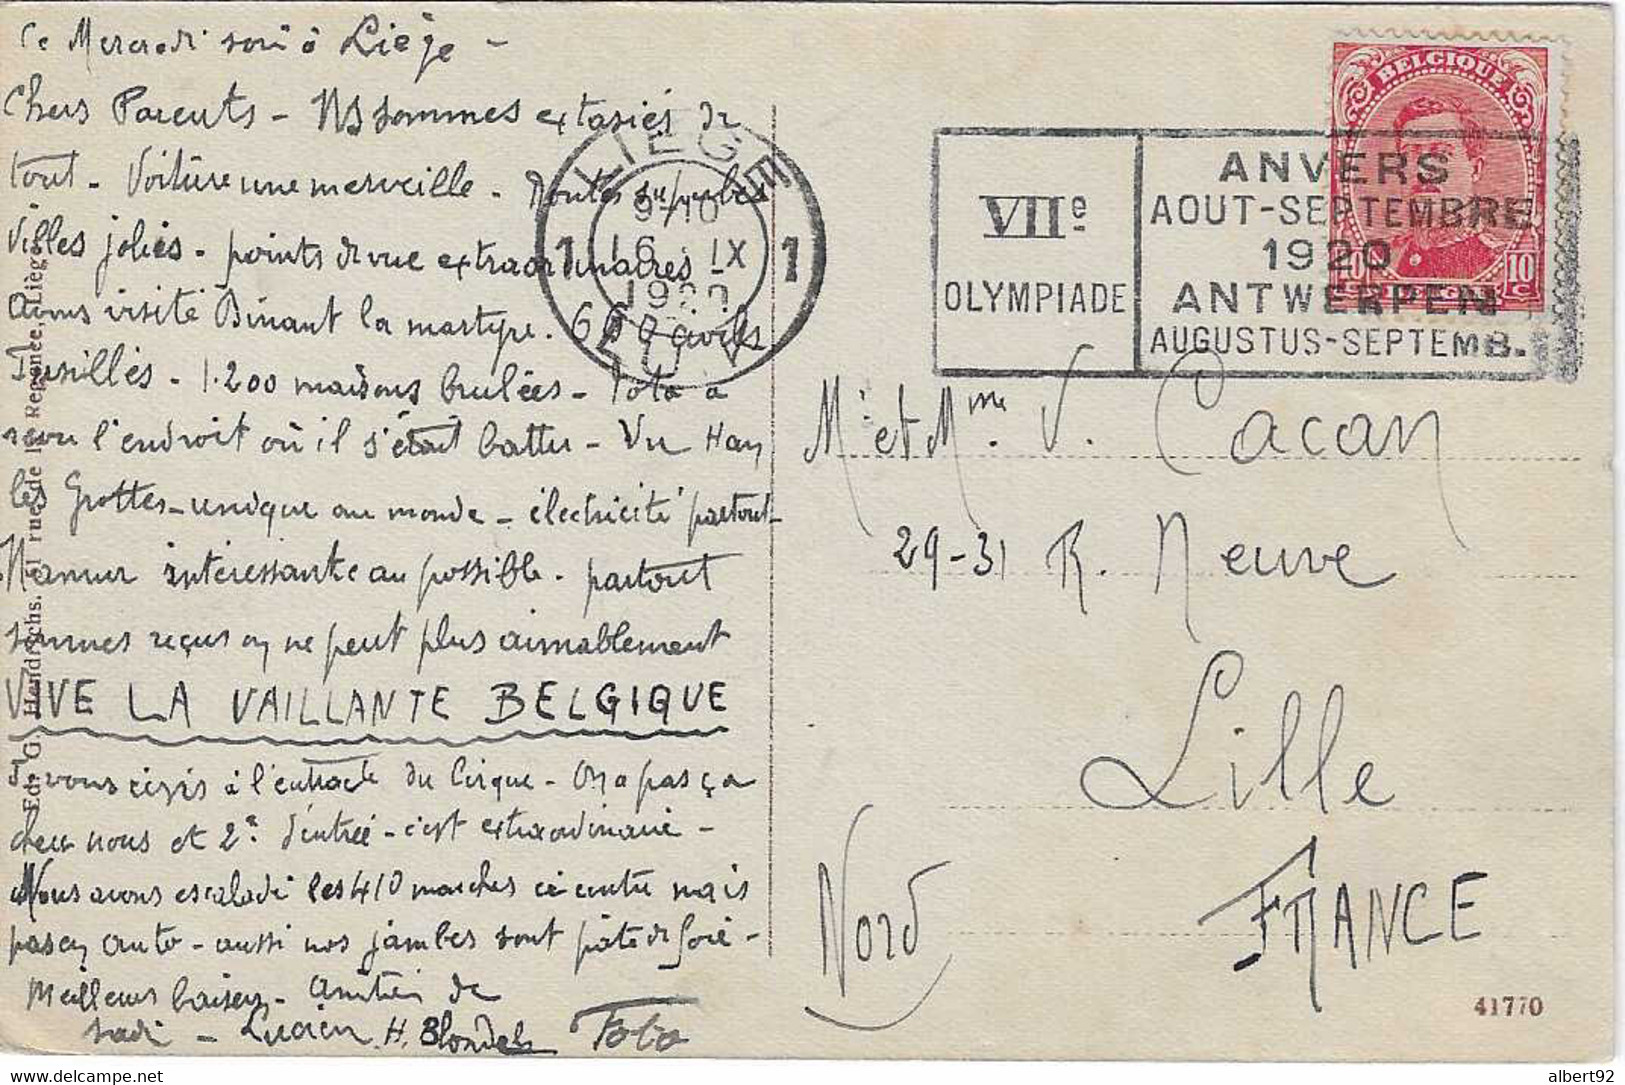 Ce Mercredi soir à Liège -
Chers Parents - Ns sommes extasiés de
tout - Voiture une merveille - Routes superbes
Villes jolies - points de vue extraordinaires -
Avons visité Dinant la martyre. 600 civils
fusillés - 1.200 maisons brulées - Toto a
revu l'endroit où il s'était battu - Vu Han
les Grottes - unique au monde - électricité partout -
Namur intéressante au possible - partout
sommes reçus on ne peut plus aimablement
VIVE LA VAILLANTE BELGIQUE
Je vous écris à l'entracte du Cirque - On a pas ça
chez nous et 2f d'entrée - c'est extraordinaire -
Nous avons escaladé les 410 marches mais
pas en auto - aussi nos jambes sont pâte de foie -
Meilleurs baisers - Amitiés de
Lucien H. Blondel Toto
Edr. G. Hendrichs, rue de l Liège
LIEGE
1 16 IX 1
1920
VIIe
OLYMPIADE
ANVERS
AOUT-SEPTEMBRE
1920
ANTWERPEN
AUGUSTUS-SEPTEMB.
BELGIQUE
10 10
C
Mr et Mme. V. Cacan
29-31 R. Neuve
Lille
Nord
FRANCE
41770
albert92